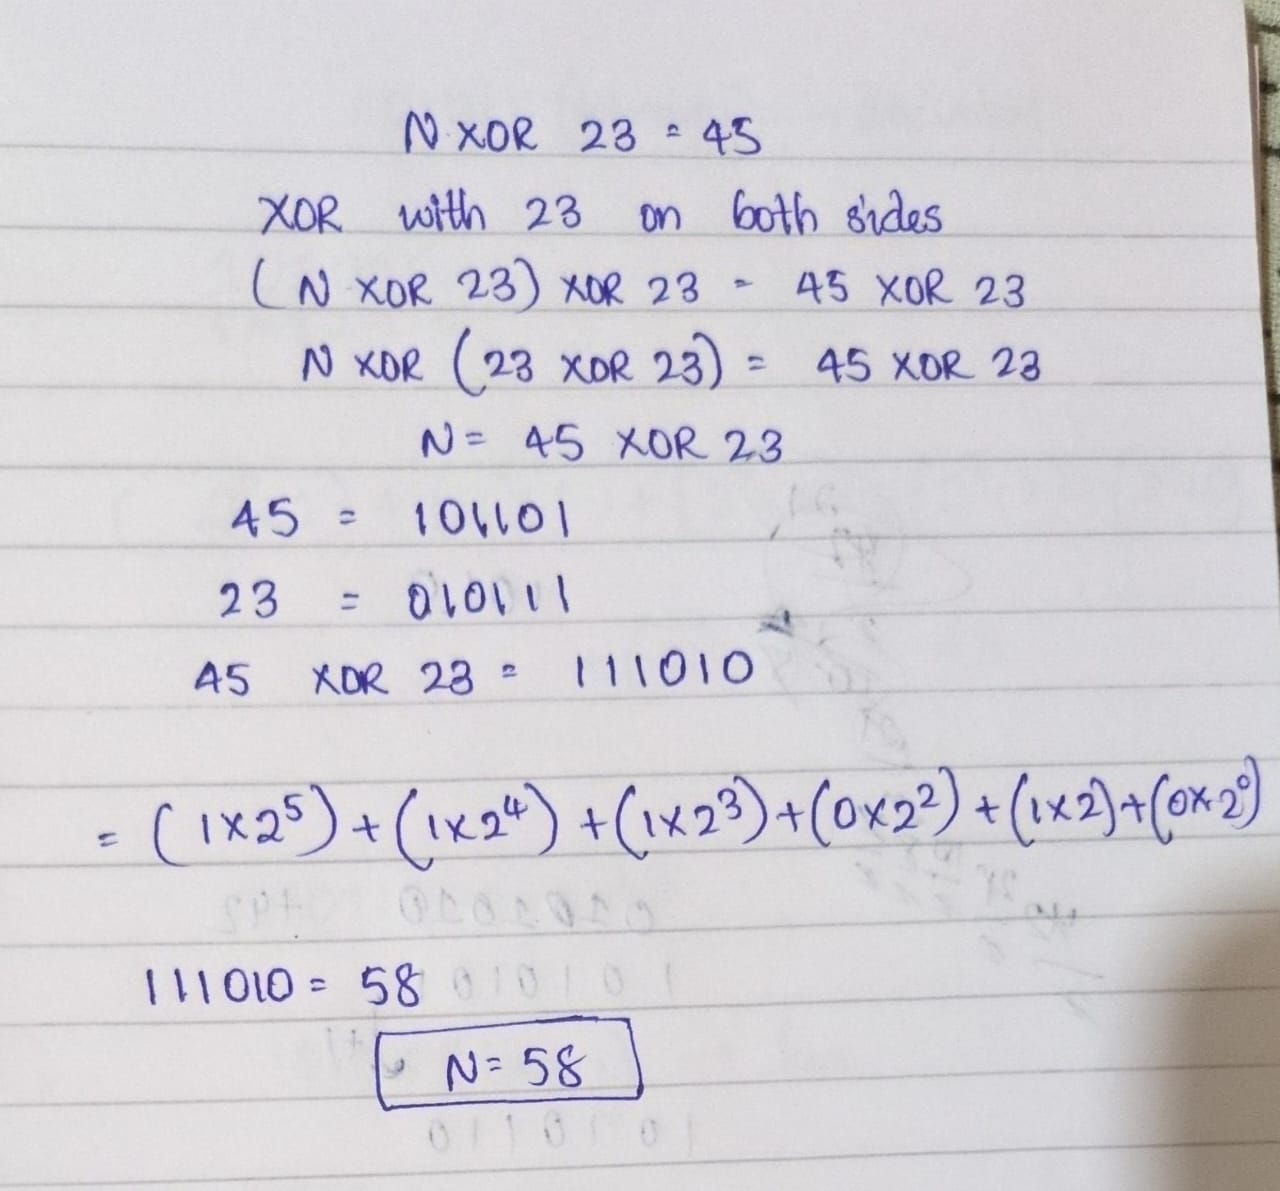 N XOR 23 = 45
XOR with 23 on both sides
(N XOR 23) XOR 23 = 45 XOR 23
N XOR (23 XOR 23) = 45 XOR 23
N = 45 XOR 23
45 = 101101
23 = 010111
45 XOR 23 = 111010
= (1x2⁵)+(1x2⁴)+(1x2³)+(0x2²)+(1x2)+(0x2⁰)
111010 = 58
N = 58